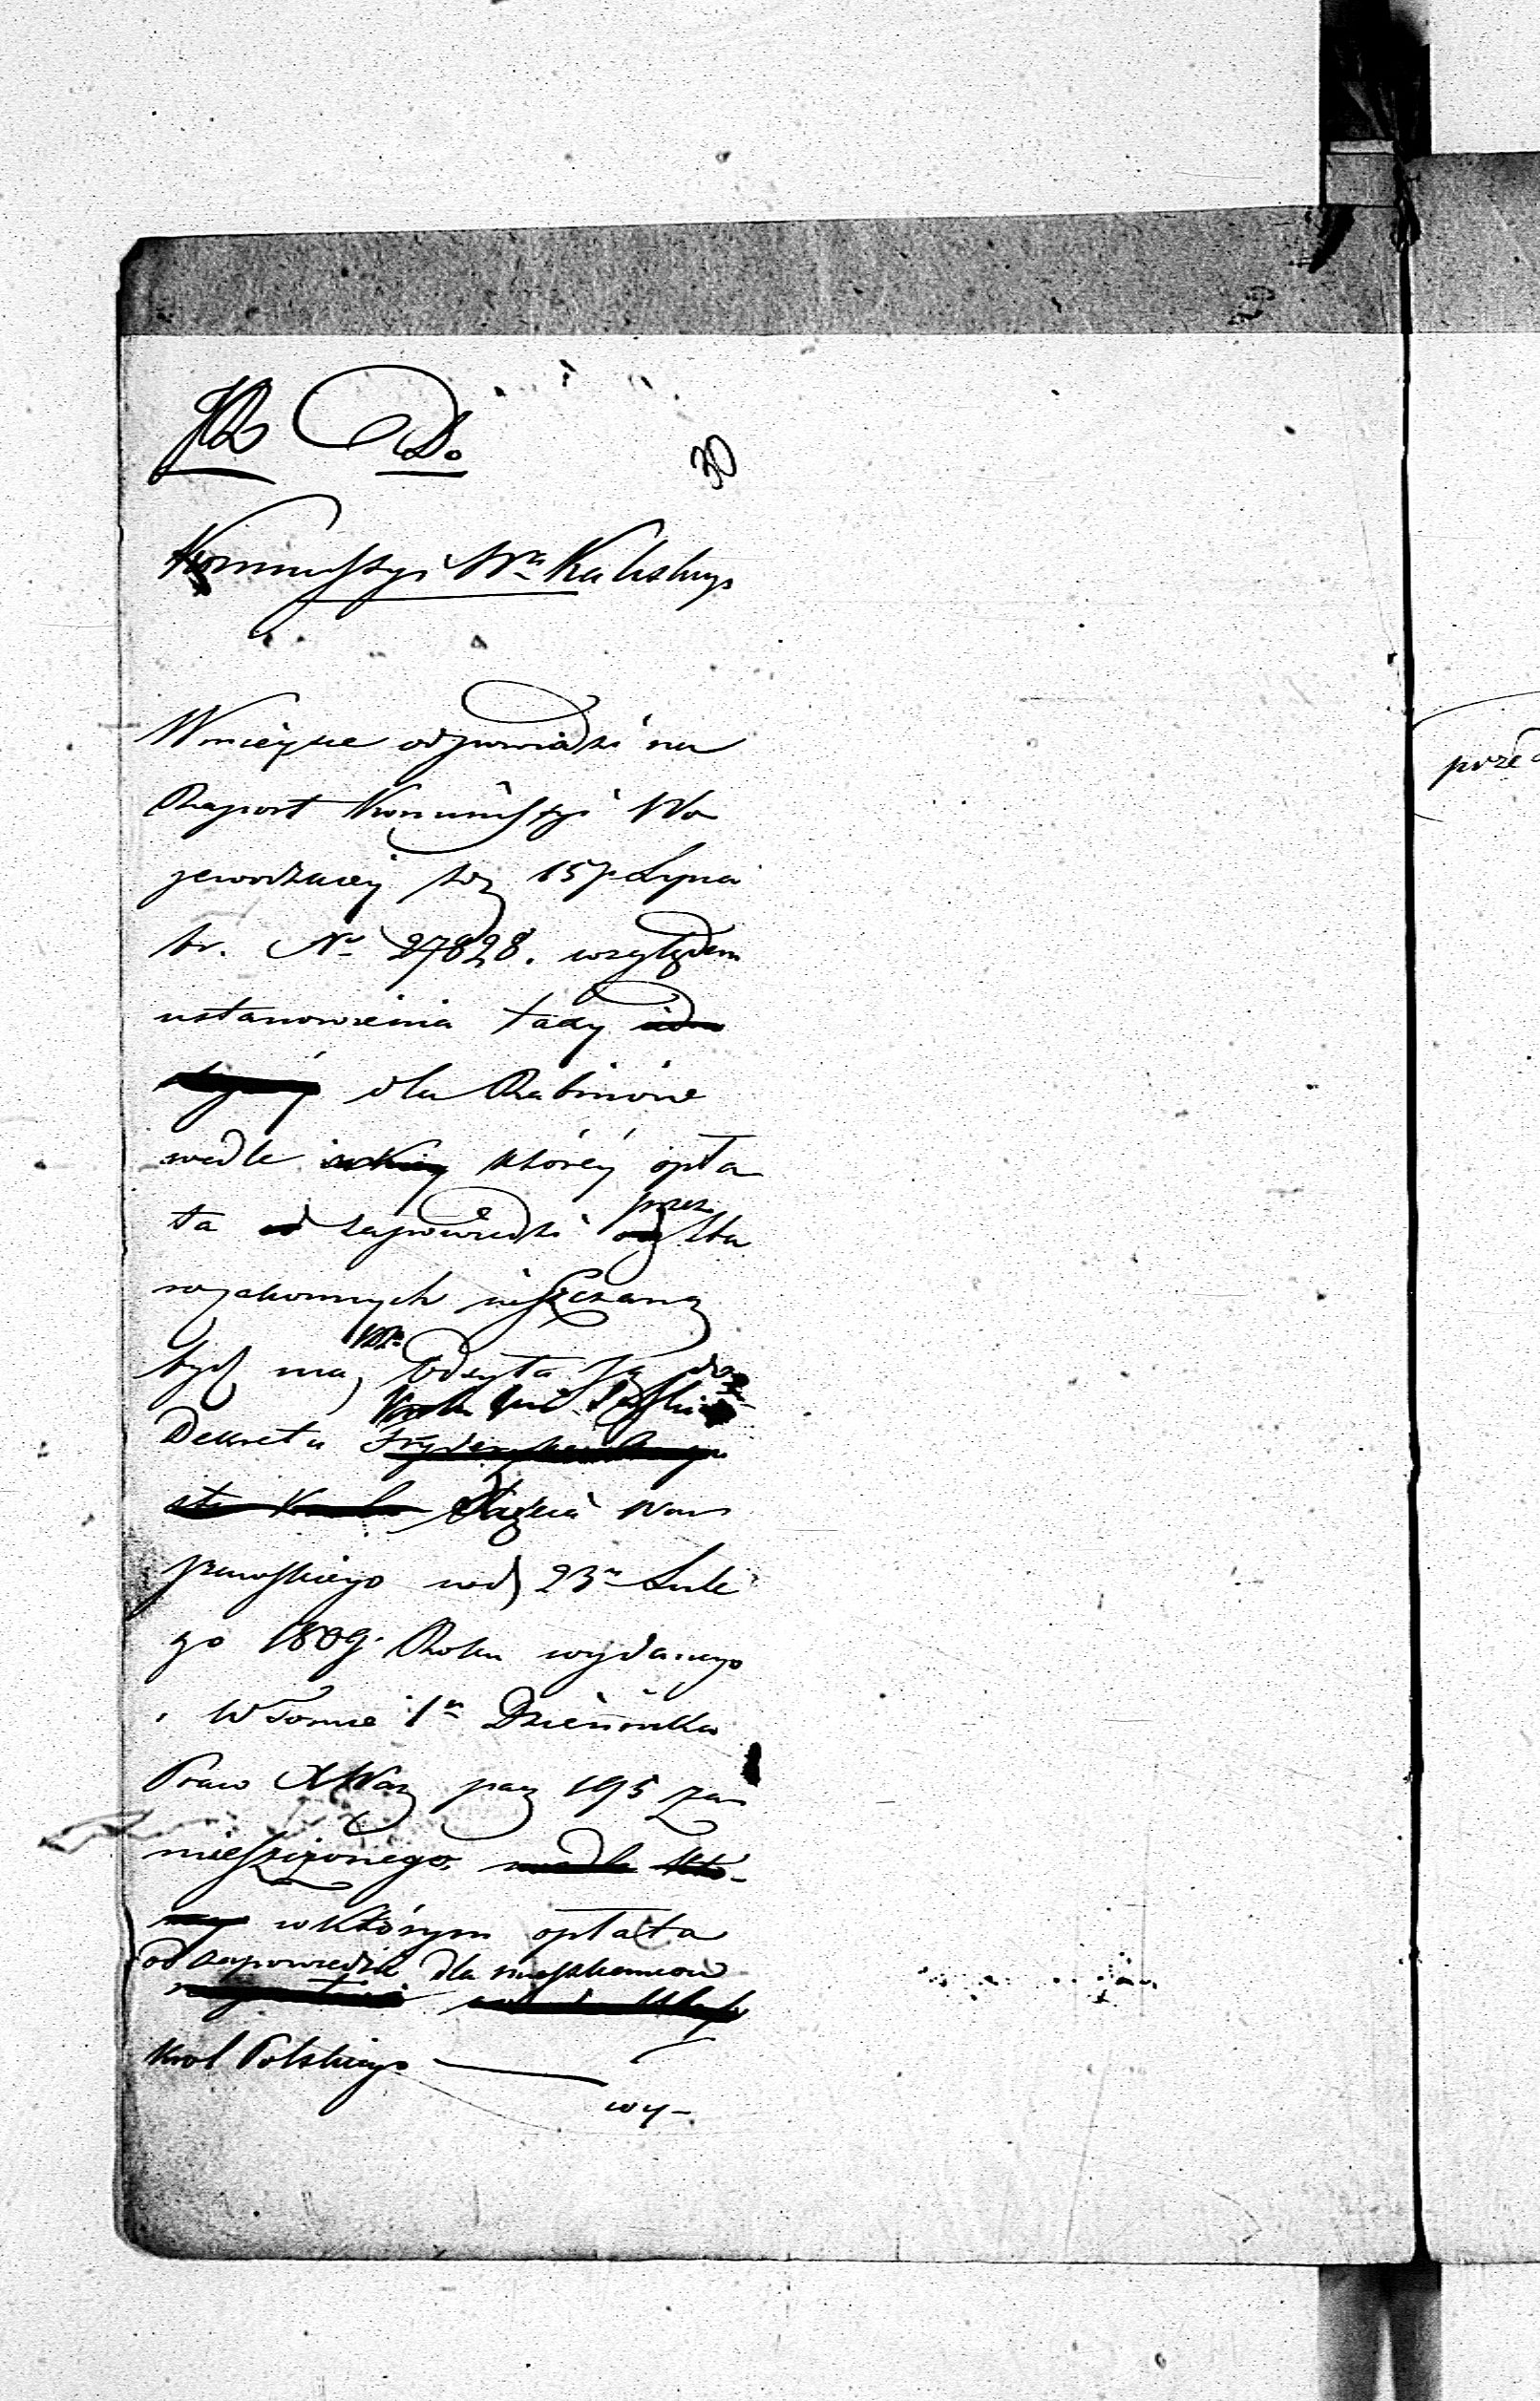 Do
30
Kommissyi Wa Kaliskiego
W miejsce odpowiedzi na
Raport Kommissyi Wo
jewodzkiej z d. 15 Lipca
br. No 27828. względem
ustanowienia taxy
dla Rabinów
wedle której opła
ta od zapowiedzi przez Sta
rozakonnych uiszczaną
być ma, odsyła ją do
Dekretu Fryderyka Augu
sta Króla Xięcia War
szawskiego na d. 23 Lute
go 1809. Roku wydanego
i w Tomie 1m Dziennika
Praw X War pag 195 za
mieszczonego, wedle któ-
rego w którym opłata
od zapowiedzi dla mieszkancow
Krol Polskiego
wy-
przed